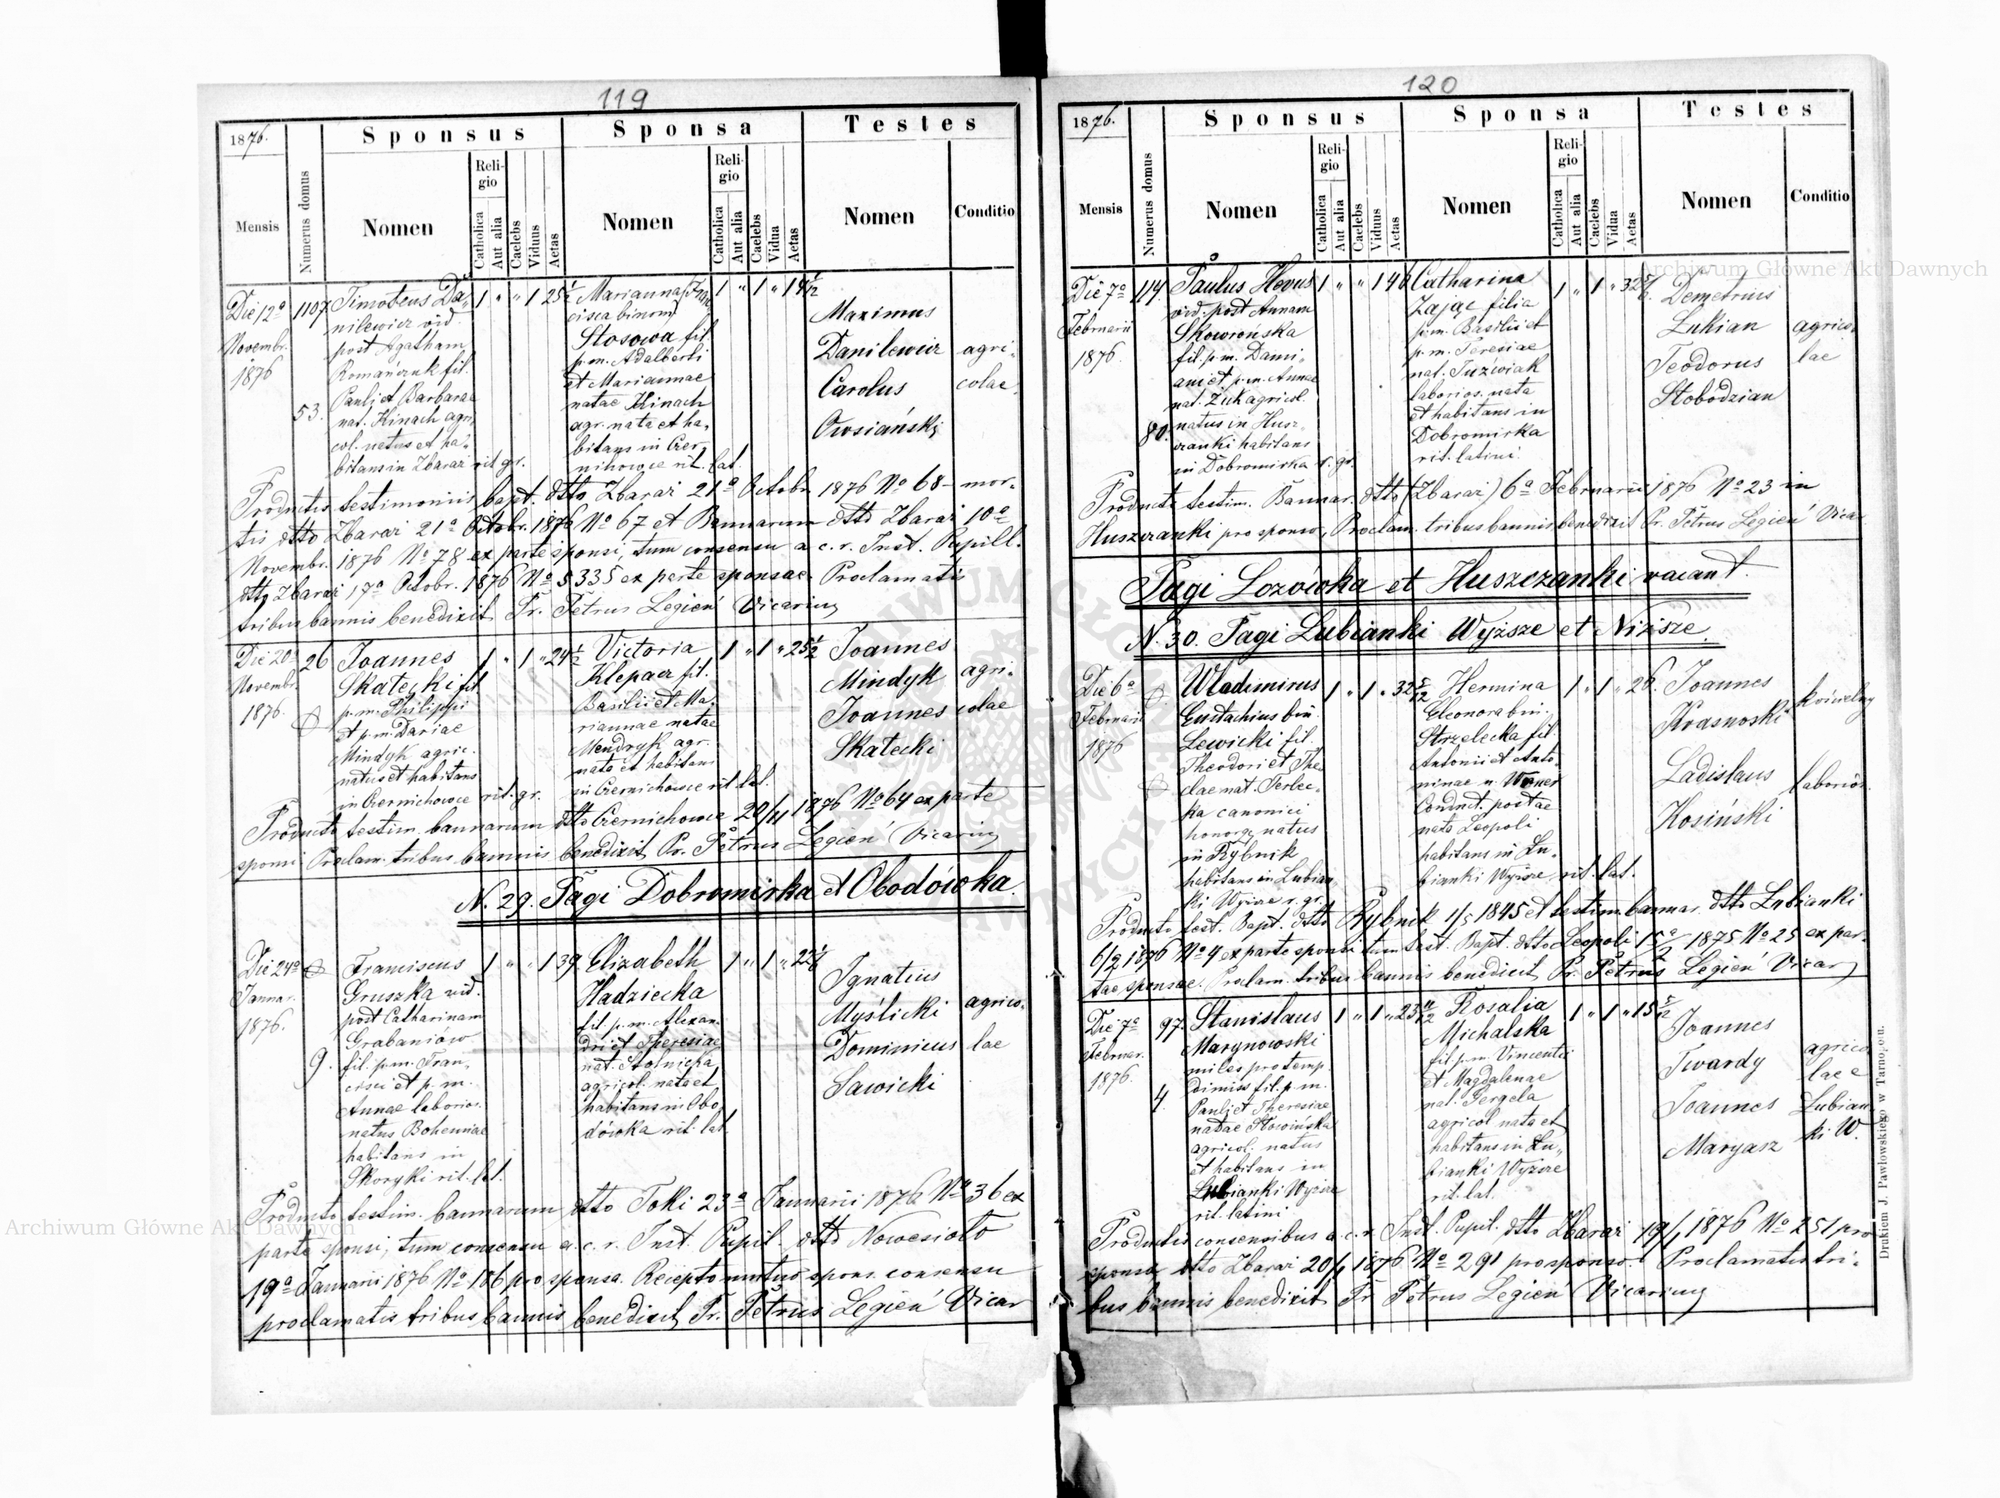 119
1876.
Sponsus
Sponsa
Testes
Mensis
Numerus domus
Nomen
Religio
Catholica
Aut alia
Caelebs
Viduus
Aetas
Nomen
Religio
Catholica
Aut alia
Caelebs
Vidua
Aetas
Nomen
Conditio
Die 12a
Novembr.
1876
1107
53.
Timoteus Da-
nilewicz vid.
post Agatham
Romańczuk fil.
Pauli et Barbarae
nat. Kinach agri
col. natus et ha-
bitans in Zbaraż rit. gr.
1 " " 1 25 1/2
Marianna Fran
cisca binom.
Stosowa fil.
p.m. Adalberti
et Mariannae
natae Kinach
agr. nata et ha-
bitans in Czer-
nichowce rit. lat.
1 " 1 "
Maximus
Danilewicz
Carolus
Owsiański
agri-
colae
Productis testimoniis bapt. dtto Zbaraż 21a Octobr. 1876 No 68 mor-
tis dtto Zbaraż 21a Octobr. 1876 No 67 et Bannarum dtto Zbaraż 10a
Novembr. 1876 No 78 ex parte sponsi, tum consensu a c. r. Inst. Pupill.
dtto Zbaraż 17a Octobr. 1876 No 5335 ex parte sponsae. Proclamatis
tribus bannis benedixit Pr. Petrus Legień Vicarius
Die 20
Novembr.
1876.
26
Joannes
Skałecki fil.
p.m. Philippi
et p.m. Dariae
Mindyk agric.
natus et habitans
in Czernichowce rit. gr.
1 " 1 " 24 1/2
Victoria
Klepacz fil.
Basilii et Ma-
riannae natae
Mendryk agr.
nata et habitans
in Czernichowce rit. lat.
1 " 1 " 25 1/2
Joannes
Mindyk
Joannes
Skałecki
agri-
colae
Producto testim. bannarum dtto Czernichowce 20/11 1876 No 64 ex parte
sponsi Proclam. tribus bannis benedixit Pr. Petrus Legień Vicarius
N. 29. Pagi Dobromirka et Obodówka.
Die 24a
Januar.
1876.
9.
Franciscus
Gruszka vid.
post Catharinam
Grabaniow
fil. p.m. Fran-
cisci et p.m.
Annae laborios.
natus Bohemiae
habitans in
Skoryki rit. lat.
1 " " 1 39
Elizabeth
Hadziecka
fil. p.m. Alexan-
dri et Theresiae
nat. Stolnicka
agricol. nata et
habitans in Obo-
dówka rit. lat.
1 " 1 "
Ignatius
Myślicki
Dominicus
Sawicki
agrico-
lae
Producto testim. bannarum dtto Toki 23a Januarii 1876 No 36 ex
parte sponsi, tum consensu a. c. r. Inst. Pupil. dtto Nowesioło
19a Januarii 1876 No 186 pro sponsa. Recepto mutuo spons. consensu
proclamatis tribus bannis benedixit Pr. Petrus Legień Vicar
120
1876.
Sponsus
Sponsa
Testes
Mensis
Numerus domus
Nomen
Religio
Catholica
Aut alia
Caelebs
Viduus
Aetas
Nomen
Religio
Catholica
Aut alia
Caelebs
Vidua
Aetas
Nomen
Conditio
Die 7a
Februarii
1876.
114.
80.
Paulus Hevus
vid. post Annam
Skowrońska
fil. p.m. Dami-
ani et p.m. Annae
nat. Żuk agricol.
natus in Husz-
czanki habitans
in Dobromirka r. gr.
1 " " 1 46
Catharina
Zając filia
p.m. Basilii et
p.m. Teresiae
nat. Juzwiak
laborios. nata
et habitans in
Dobromirka
rit. latini.
1 " 1 "
Demetrius
Lukian
Teodorus
Słobodzian
agrico-
lae
Producto testim. Bannar. dtto (Zbaraż) 6a Februarii 1876 No 23 in
Huszczanki pro sponso, Proclam. tribus bannis benedixit Pr. Petrus Legień Vicar
Pagi Lozówka et Huszczanki vacant.
N. 30. Pagi Lubianki Wyższe et Niższe.
Die 6a
Februarii
1876
Wladimirus
Eustachius bin.
Lewicki fil.
Theodori et The-
clae nat. Terlec-
ka canonici
honor. natus
in Rybnik
habitans in Lubian-
ki Wyższe r. gr.
1 " 1 " 32 5/12
Hermina
Eleonora bin.
Strzelecka fil.
Antonii et Anto-
ninae n. Werner
Conduct. postae
nata Leopoli
habitans in Lu-
bianki Wyższe rit. lat.
1 " 1 " 26.
Joannes
Krasnoski
Ladislaus
Kosiński
laborios.
Producto test. Bapt. dtto Rybnik 1/5 1845 et testim. bannar. dtto Lubianki
6/2 1876 No 4 ex parte sponsi tum test. Bapt. dtto Leopoli 1875 No 25 ex par-
tae sponsae. Proclam. tribus bannis benedixit Pr. Petrus Legień Vicar
Die 7a
Februar.
1876.
97.
4.
Stanislaus
Marynowski
miles pro temp.
dimiss fil. p.m.
Pauli et Theresiae
natae Słowińska
agricol. natus
et habitans in
Lubianki Wyższe
rit. latini
1 " 1 " 23 11/12
Rosalia
Michalska
fil. p.m. Vincentii
et Magdalenae
nat. Gergela
agricol nata et
habitans in Lu-
bianki Wyższe
rit. lat.
1 " 1 " 15 5/12
Joannes
Twardy
Joannes
Maryasz
agrico
lae e
Lubian
ki W.
Productis consensibus a c. r. Inst. Pupil. dtto Zbaraż 19/1 1876 No 251 pro
sponsa dtto Zbaraż 20/1 1876 No 291 pro sponso. Proclamatis tri-
bus bannis benedixit Pr Petrus Legień Vicarius
Drukiem J. Pawłowskiego w Tarnopolu.
Archiwum Główne Akt Dawnych
Archiwum Główne Akt Dawnych